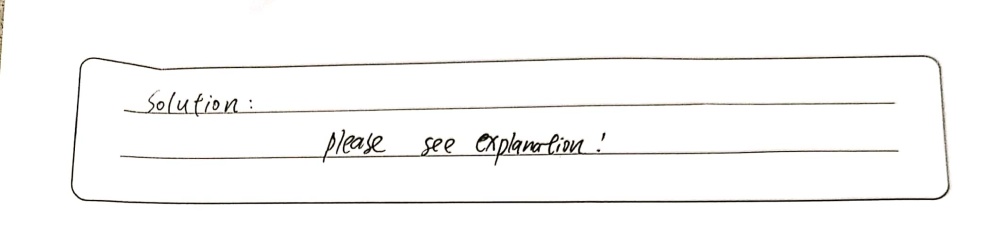 Solution:
please see explanation!